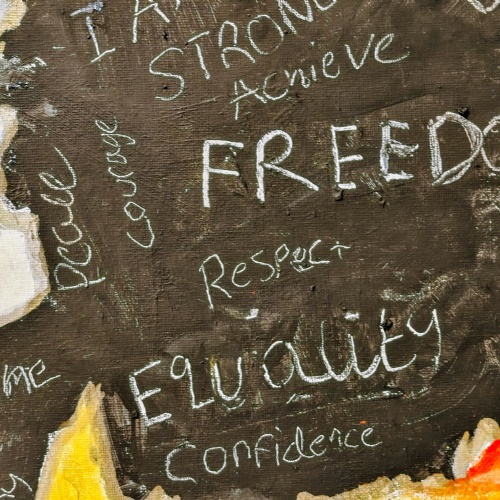 I AM
STRONG
Achieve
FREEDO
courage
Peace
Respect
Equality
me
Confidence